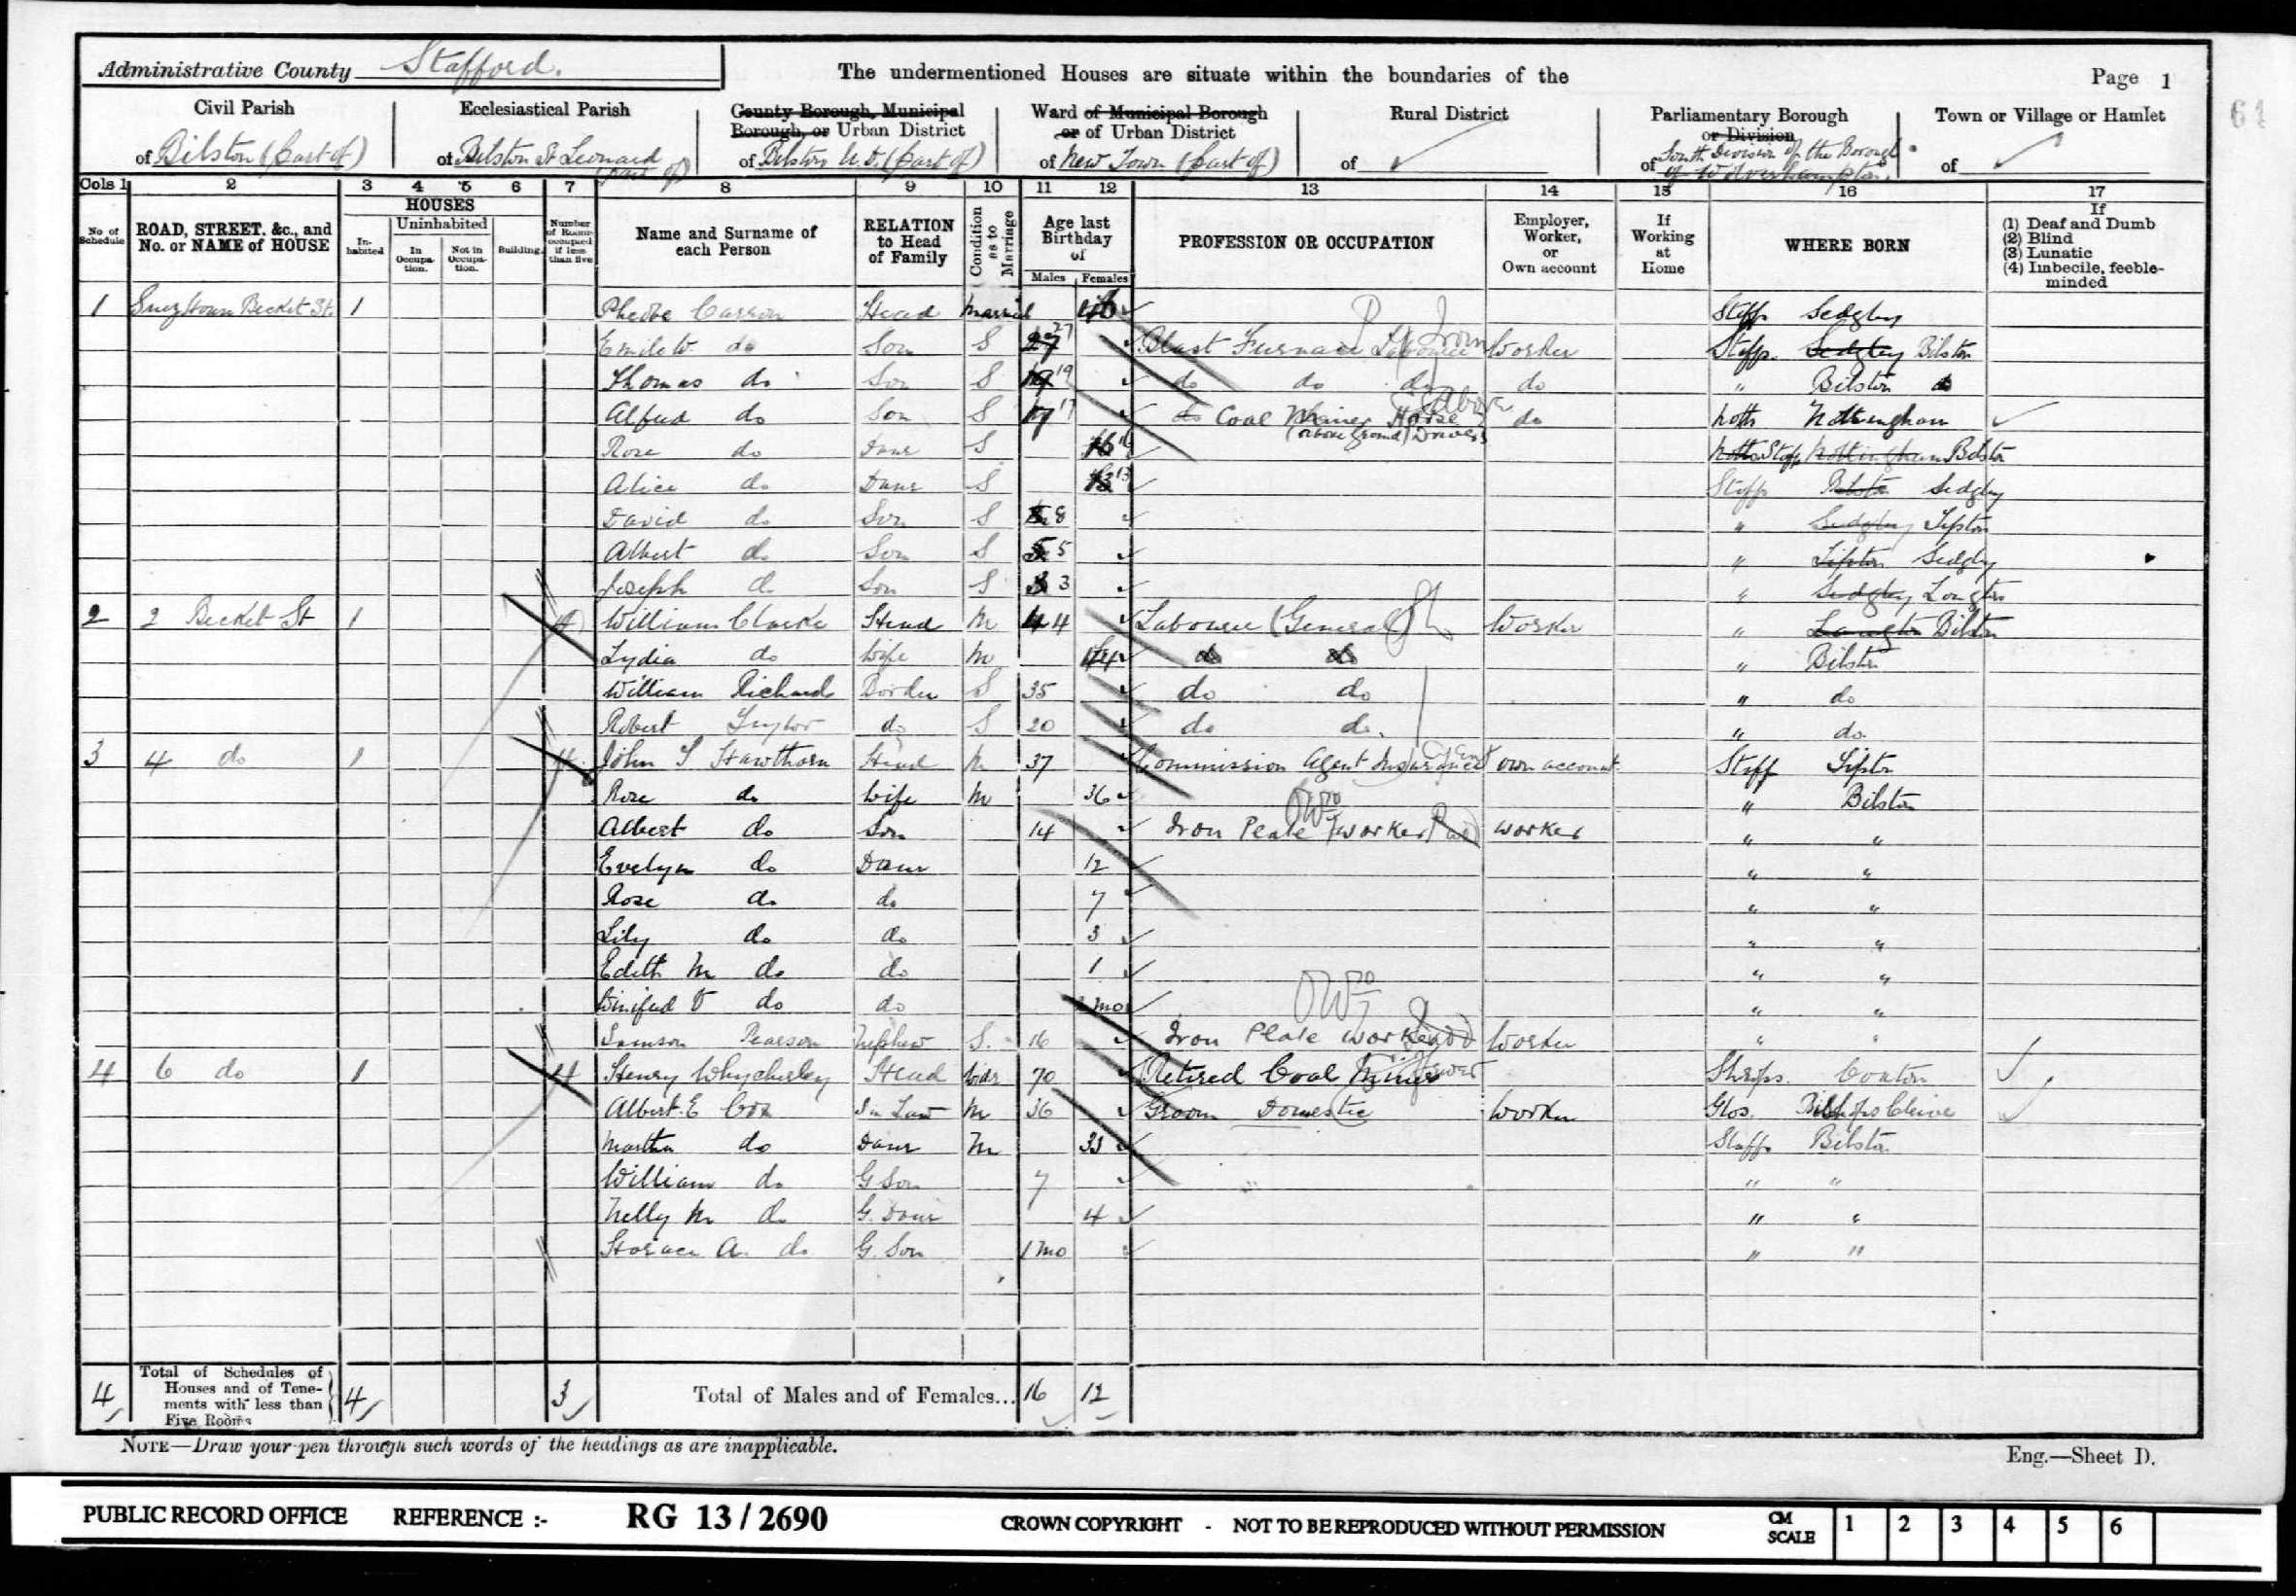 Administrative County Stafford.
The undermentioned Houses are situate within the boundaries of the
Page 1
61
Civil Parish
of Bilston (Part of)
Ecclesiastical Parish
of Bilston St Leonard
(part of)
County Borough, Municipal
Borough, or Urban District
of Bilston U.D. (Part of)
Ward of Municipal Borough
or of Urban District
of New Town (Part of)
Rural District
of
Parliamentary Borough
or Division
of South Division of the Borough
of Wolverhampton.
Town or Village or Hamlet
of
Cols 1 2 3 4 5 6 7 8 9 10 11 12 13 14 15 16 17
No of Schedule
ROAD, STREET, &c., and No. or NAME of HOUSE
HOUSES
In-habited
Uninhabited
In Occupa-tion.
Not in Occupa-tion.
Building.
Number of Rooms occupied if less than five
Name and Surname of each Person
RELATION to Head of Family
Condition as to Marriage
Age last Birthday of
Males Females
PROFESSION OR OCCUPATION
Employer, Worker, or Own account
If Working at Home
WHERE BORN
If
(1) Deaf and Dumb
(2) Blind
(3) Lunatic
(4) Imbecile, feeble-minded
1 Becket St. 1 Phebe Head Married Staff Sedgley
do Son S 27 27 Blast Furnace Labourer Iron Worker Staffs. Sedgley Bilston
Thomas do Son S 19 19 do do do do " Bilston
Alfred do Son S 17 17 do Coal Miner Horse do Notts Nottingham
(above ground) Driver
Rose do Daur S 16 Notts Staffs Nottingham Bilston
Alice do Daur S 13 13 Staffs Bilston Sedgley
David do Son S 8 " Sedgley Tipton
Albert do Son S 5 5 " Tipton Sedgley
Joseph do Son S 3 3 " Sedgley Longton
2 2 Becket St 1 4 William Clarke Head M 44 Labourer (General) Worker " Longton Bilston
Lydia do Wife M 44 do do " Bilston
William Richards Border S 35 do do " do
Robert Taylor do S 20 do do. " do.
3 4 do 1 4 John S Hawthorn Head M 37 Commission Agent Insurance Agent own account Staff Tipton
Rose do Wife M 36 " Bilston
Albert do Son 14 Iron Plate worker worker " "
Evelyn do Daur 12 " "
Rose do do 7 " "
Lily do do 3 " "
Edith M do do 1 " "
Winifred V do do mo " "
Samson Pearson Nephew S. 16 Iron Plate worker Worker " "
4 6 do 1 4 Henry Whycherley Head Widr 70 Retired Coal Miner Hewer Shrops.
Albert. E Cox In Law M 36 Groom Domestic Worker Glos. Bishops Cleive
Martha do Daur M 33 Staffs Bilston
William do G Son 7 " "
Nelly M do G. Daur 4 " "
Horace A. do G. Son 1 mo " "
4 Total of Schedules of Houses and of Tene-ments with less than Five Rooms 4 3 Total of Males and of Females... 16 12
NOTE—Draw your pen through such words of the headings as are inapplicable.
Eng.—Sheet D.
PUBLIC RECORD OFFICE REFERENCE :- RG 13 / 2690 CROWN COPYRIGHT - NOT TO BE REPRODUCED WITHOUT PERMISSION CM SCALE 1 2 3 4 5 6